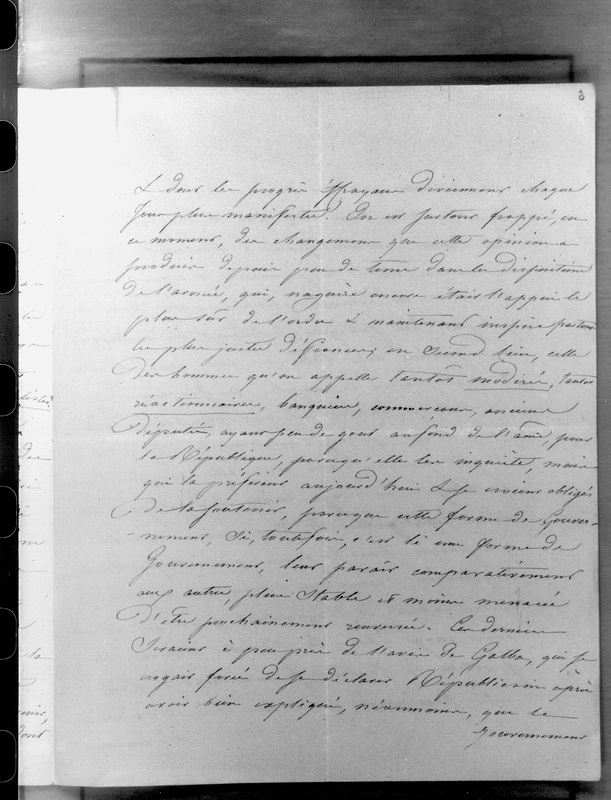 3
& dont les progrès effrayans deviennent chaque
jour plus manifestes. On est surtout frappé, en
ce moment, des changemens que cette opinion a
produits depuis peu de tems dans les dispositions
de l'armée, qui, naguère encore était l'appui le
plus sûr de l'ordre & maintenant inspire partout
les plus justes défiances; en second lieu, celle
des hommes qu'on appelle tantôt modérés, tantôt
réactionnaires, banquiers, commerçans, anciens
Députés, ayant peu de gout au fond de l'âme, pour
la République, parcequ'elle les inquiète, mais
qui la préfèrent aujourd'hui & se croient obligés
de la soutenir, parceque cette forme de Gouver-
-nement, si, toutefois, c'est là une forme de
Gouvernement, leur paraît comparativement
aux autres, plus stable et moins menacée
d'être prochainement renversée. Ces derniers
seraient à peu près de l'avis de Galba, qui se
croyait forcé de se déclarer Républicain après
avoir bien expliqué, néanmoins, que le
Gouvernement